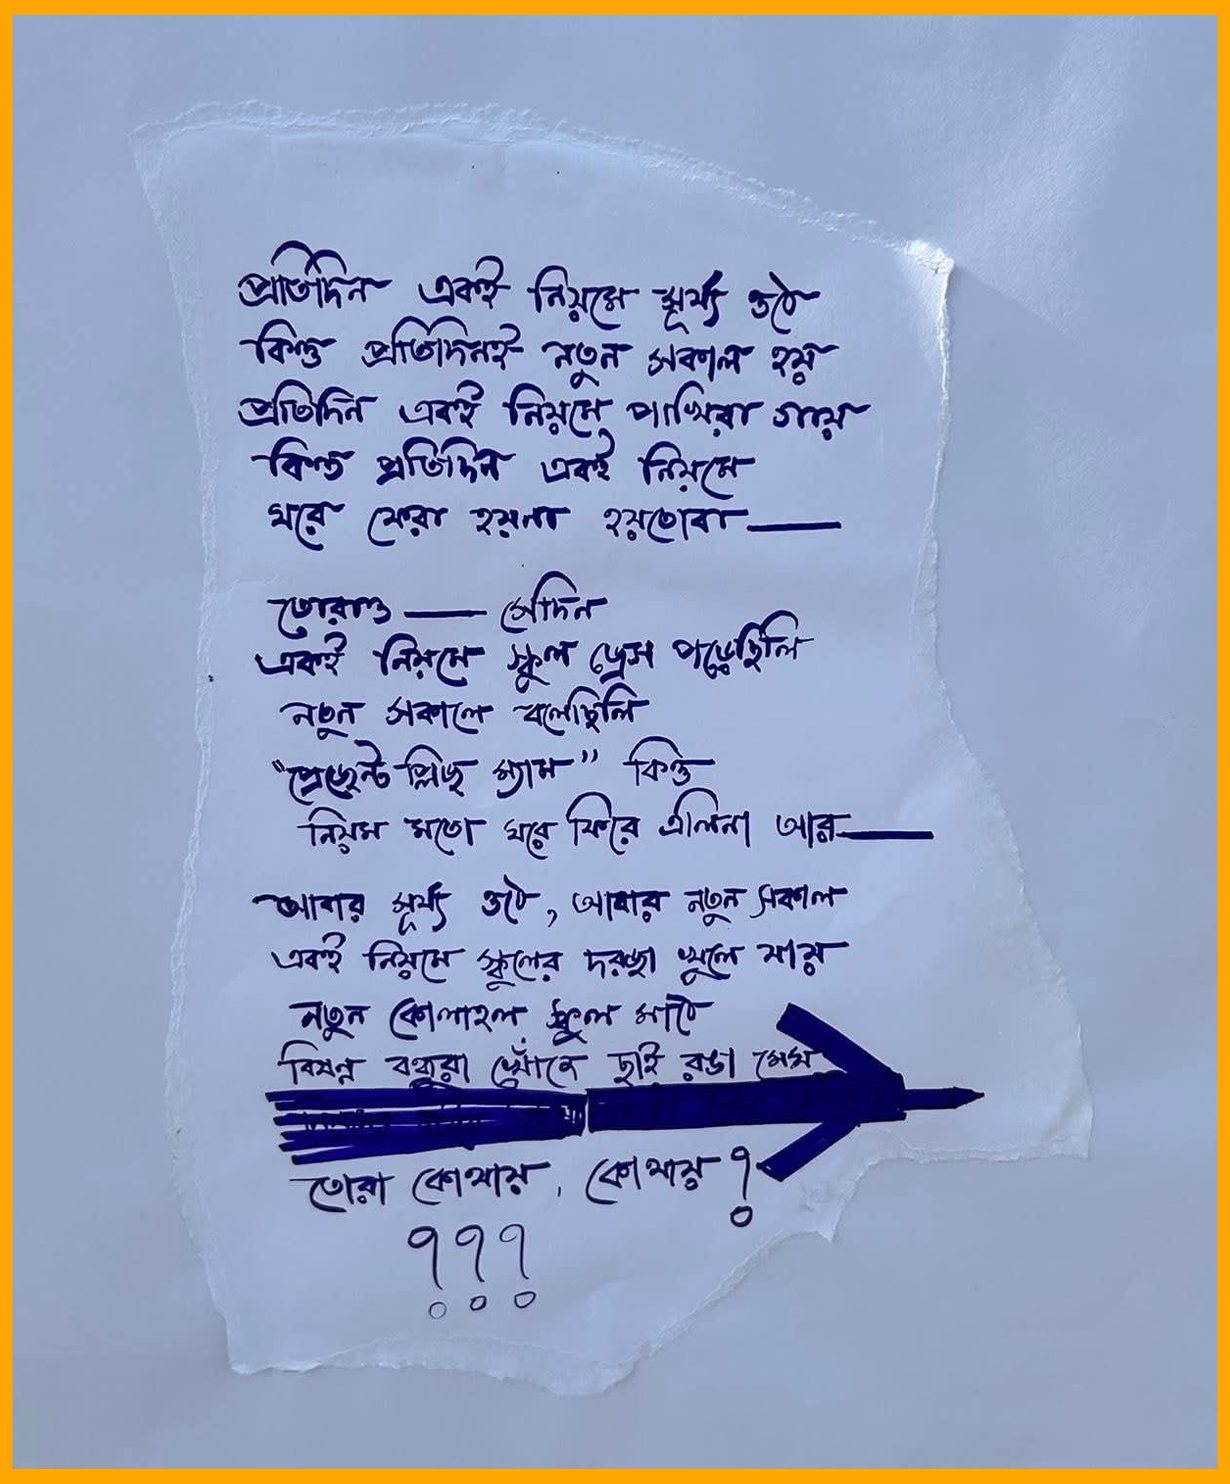 প্রতিদিন একই নিয়মে সূর্য্য ওঠে
কিন্তু প্রতিদিনই নতুন সকাল হয়
প্রতিদিন একই নিয়মে পাখিরা গায়
কিন্তু প্রতিদিন একই নিয়মে
ঘরে ফেরা হয়না হয়তোবা —
তোরাও — সেদিন
একই নিয়মে স্কুল ড্রেস পড়েছিলি
নতুন সকালে বলেছিলি
“প্রেজেন্ট প্লিজ ম্যাম” কিন্তু
নিয়ম মতো ঘরে ফিরে এলিনা আর —
আবার সূর্য্য ওঠে, আবার নতুন সকাল
একই নিয়মে স্কুলের দরজা খুলে যায়
নতুন কোলাহল স্কুল মাঠে
বিষন্ন বন্ধুরা খোঁজে ছাই রঙা মেঘ
তোরা কোথায়, কোথায় ?
? ? ?